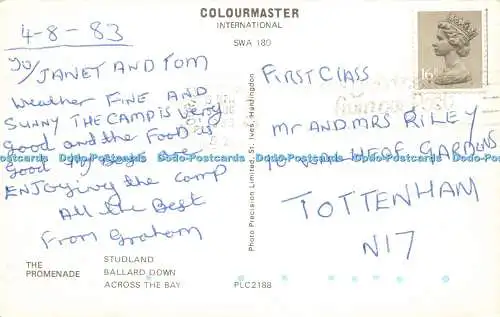 COLOURMASTER
INTERNATIONAL
SWA 180
4-8-83
TO/ JANET AND TOM
Weather FINE AND
SUNNY THE CAMP IS very
Good and the FOOD is
Good My Boys are
ENJOying the camp
All the Best
From Graham
FIRST CLASS
Mr AND MRS RILEY
GARDENS
TOTTENHAM
N17
16P
Photo Precision Limited, St. Ives, Huntingdon
THE
PROMENADE
STUDLAND
BALLARD DOWN
ACROSS THE BAY
PLC2188
Dodo-Postcards Dodo-Postcards Dodo-Postcards Dodo-Postcards Dodo-Postcards Dodo-Postcards